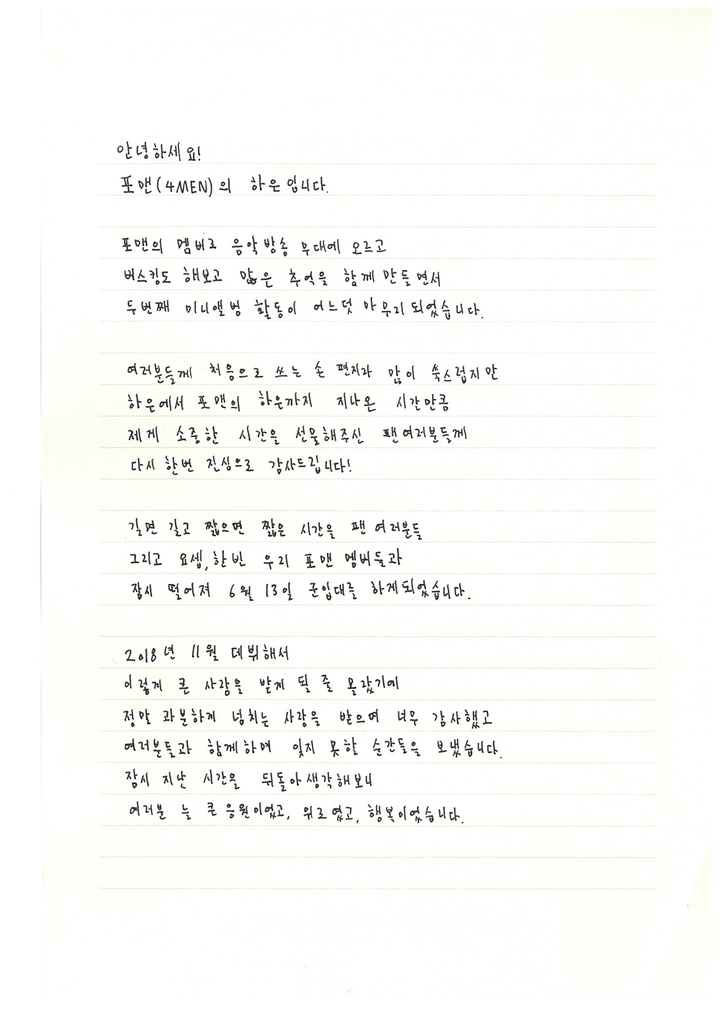 안녕하세요!
포맨(4MEN)의 하은입니다.
포맨의 멤버로 음악방송 무대에 오르고
버스킹도 해보고 많은 추억을 함께 만들면서
두번째 미니앨범 활동이 어느덧 마무리되었습니다.
여러분들께 처음으로 쓰는 손 편지라 많이 쑥스럽지만
하은에서 포맨의 하은까지 지나온 시간만큼
제게 소중한 시간을 선물해주신 팬여러분들께
다시 한번 진심으로 감사드립니다!
길면 길고 짧으면 짧은 시간을 팬 여러분들
그리고 요셉,한빈 우리 포맨 멤버들과
잠시 떨어져 6월 13일 군입대를 하게되었습니다.
2018년 11월 데뷔해서
이렇게 큰 사랑을 받게 될 줄 몰랐기에
정말 과분하게 넘치는 사랑을 받으며 너무 감사했고
여러분들과 함께하며 잊지 못할 순간들을 보냈습니다.
잠시 지난 시간을 뒤돌아생각해보니
여러분 늘 큰 응원이었고, 위로였고, 행복이었습니다.